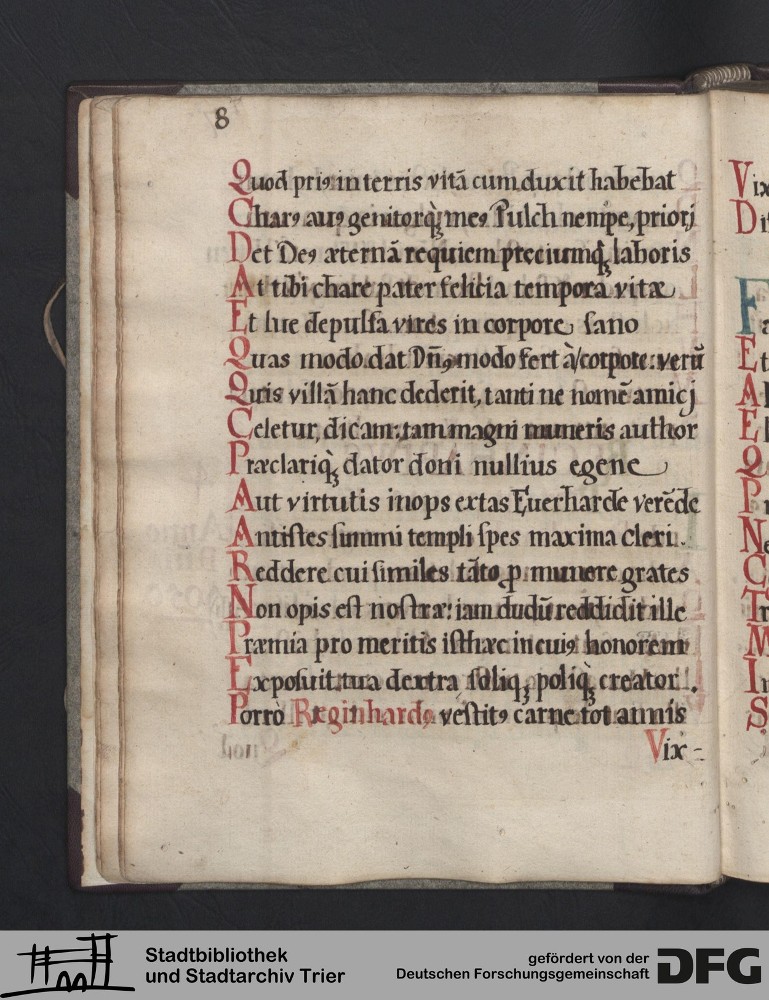 8
Quod priꝯ in terris vitā cum duxit habebat
Charꝯ auꝯ genitorq́ꝫ meꝯ Pulch nempe, priorj
Det Deꝯ æternā requiem preciumq́ꝫ laboris
At tibi chare pater felicia tempora vitæ
Et lue depulsa vires in corpore sano
Quas modo dat Dn̄ꝯ modo fert à corpore: verū
Quis villā hanc dederit, tanti ne nomē amicj
Celetur, dicam: tam magni muneris author
Præclariq́ꝫ dator doni nullius egene
Aut virtutis inops extas Euerharde verēde
Antistes summi templi spes maxima cleri.
Reddere cui similes tāto ꝓ munere grates
Non opis est nostræ: iam dudū reddidit ille
Præmia pro meritis isthæc in cuiꝯ honorem
Exposuit tua dextra soliqꝫ poliq́ꝫ creator.
Porrò Reginhardꝯ vestitꝯ carne tot annis
Vix-
Vix
D
F
E
A
E
Q
P
N
C
Tr
M
I
S
Stadtbibliothek
und Stadtarchiv Trier
gefördert von der
Deutschen Forschungsgemeinschaft
DFG